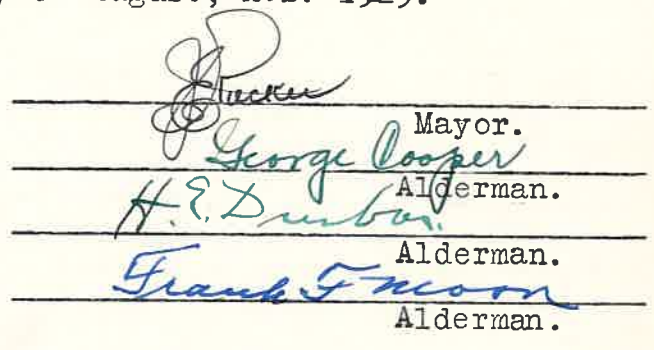 August, A.D. 1929.
Mayor.
George Cooper
Alderman.
H. E. Dunbar.
Alderman.
Frank F Moon
Alderman.